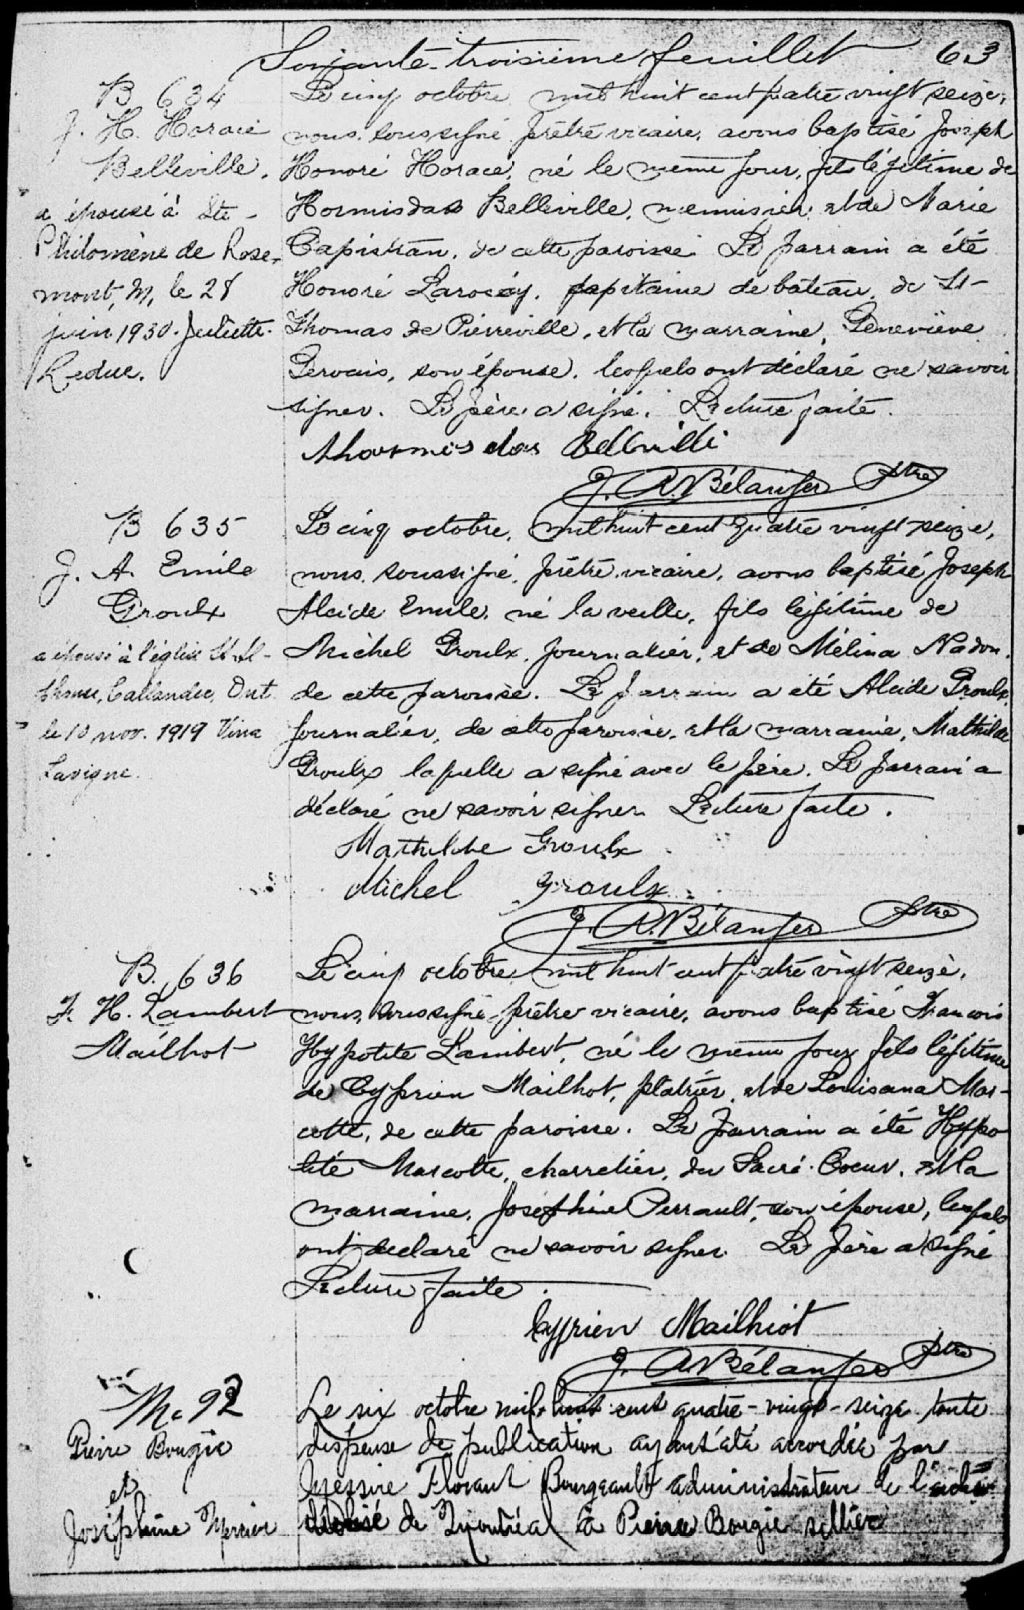 Soixante-troisième feuillet 63
B 634
J. H. Horace
Belleville.
a épousé à Ste-
Philomène de Rose-
mont, M, le 28
juin 1930. Juliette
Leduc.
Le cinq octobre, mil huit cent quatre vingt seize,
nous, soussigné, prêtre vicaire, avons baptisé Joseph
Honoré Horace, né le même jour, fils légitime de
Hormisdas Belleville, menuisier, et de Marie
Capistran, de cette paroisse. Le parrain a été
Honoré Laroc, capitaine de bateau, de St-
Thomas de Pierreville, et la marraine, Geneviève
Gervais, son épouse, lesquels ont déclaré ne savoir
signer. Le père a signé. Lecture faite.
Belleville
J. A. Bélanger Ptre
B 635
J. A. Emile
Groulx
a épousé à l'église St Al-
Callander, Ont
le 10 nov. 1919 Vina
Lavigne.
Le cinq octobre, mil huit cent quatre vingt seize,
nous, soussigné, prêtre vicaire, avons baptisé Joseph
Alcide Emile, né la veille, fils légitime de
Michel Groulx, journalier, et de Mélina Nadon,
de cette paroisse. Le parrain a été Alcide Groulx,
journalier, de cette paroisse, et la marraine, Mathilde
Groulx laquelle a signé avec le père. Le parrain a
déclaré ne savoir signer. Lecture faite.
Mathilde Groulx
Michel Groulx
J. A. Bélanger Ptre
B. 636
F. H. Lambert
Mailhot
Le cinq octobre, mil huit cent quatre vingt seize,
nous, soussigné, prêtre vicaire, avons baptisé François
Hypolite Lambert, né le même jour, fils légitime
de Cyprien Mailhot, plâtrier, et de Louisana Mar-
cotte, de cette paroisse. Le parrain a été Hypo
lite Marcotte, charretier, du Sacré-Coeur, et la
marraine, Joséphine Perrault, son épouse, lesquels
ont déclaré ne savoir signer. Le père a signé
Lecture faite.
Cyprien Mailhiot
J. A. Bélanger Ptre
M. 92
Pierre Bougie
et
Joséphine Mercier
Le six octobre mil huit cent quatre-vingt-seize toute
dispense de publication ayant été accordée par
Messire Florant Bourgeault administrateur de l'archi
diocèse de Montréal à Pierre Bougie sellier